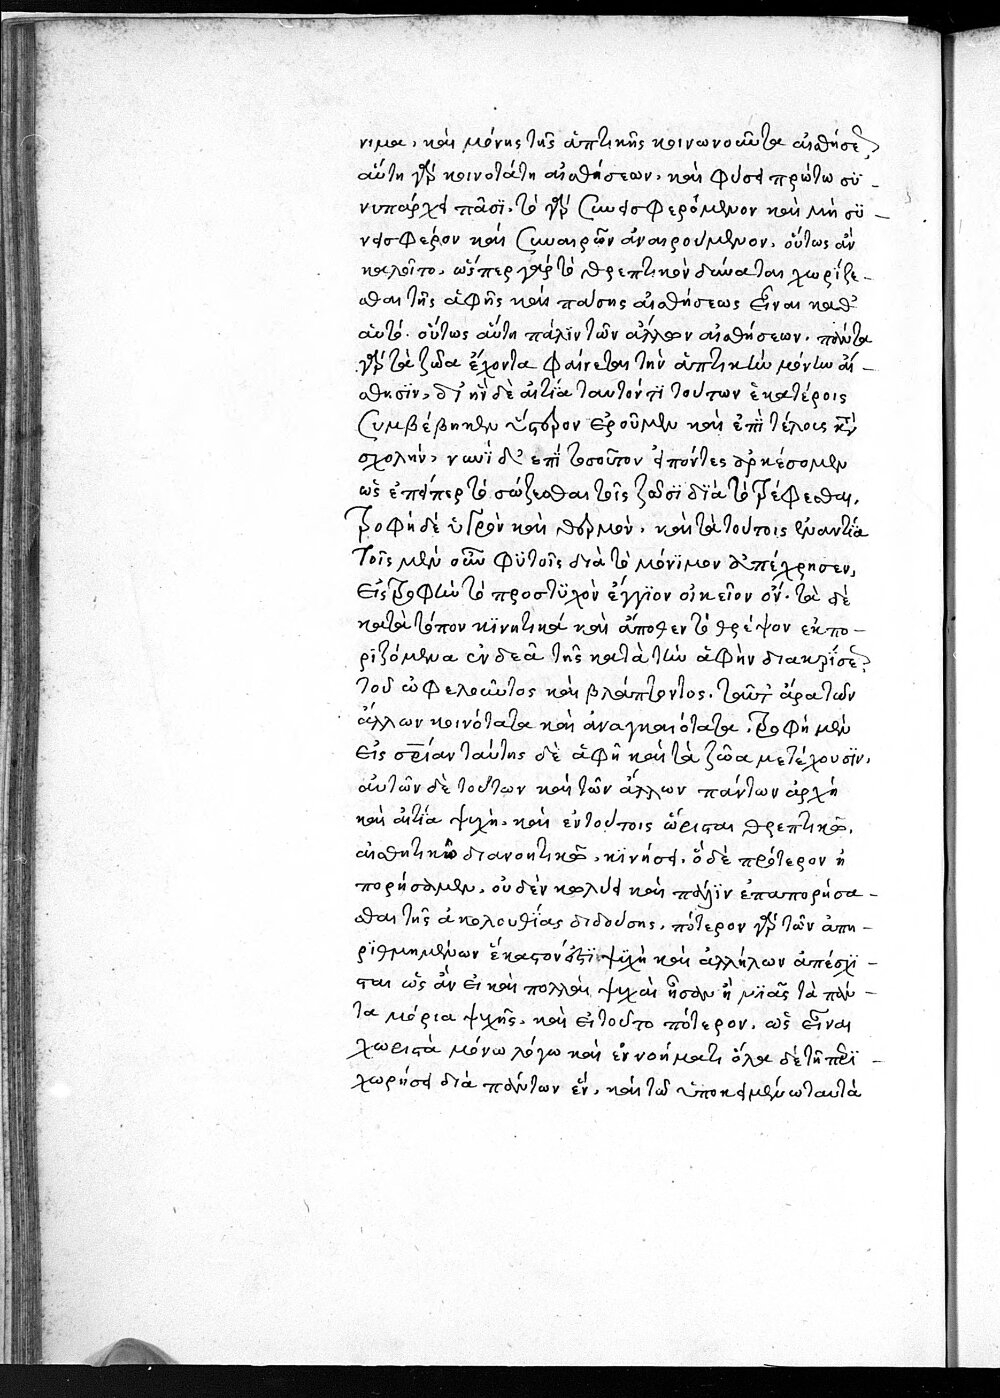 νιμα, καὶ μόνης τῆς ἁπτικῆς κοινωνοῦντα αἰσθήσεως
αὕτη γὰρ κοινοτάτη αἰσθήσεων, καὶ φύσει πρώτω συ-
νυπάρχει πᾶσι. τὸ γὰρ συνεισφερόμενον καὶ μὴ συ-
νεισφέρον καὶ συναιροῦν ἀναιρούμενον, οὕτως ἂν
καλοῖτο, ὥσπερ γὰρ τὸ θρεπτικὸν δύναται χωρίζε-
σθαι τῆς ἁφῆς καὶ πάσης αἰσθήσεως εἶναι καθ'
αὑτό. οὕτως αὕτη πάλιν τῶν ἄλλων αἰσθήσεων. πάντα
γὰρ τὰ ζῶα ἔχοντα φαίνεται τὴν ἁπτικὴν μόνην αἴ-
σθησιν, δι' ἣν δὲ αἰτία ταυτόν τι τούτων ἑκατέροις
συμβέβηκεν ὕστερον ἐροῦμεν καὶ ἐπὶ τέλοις κατὰ
σχολήν, νυνὶ δὲ ἐπὶ τοσοῦτον εἰπόντες ἀρκέσομεν
ὡς ἐπείπερ τὸ σώζεσθαι τοῖς ζῶσι διὰ τὸ τρέφεσθαι,
τροφὴ δὲ ὑγρὸν καὶ θερμὸν, καὶ τὰ τούτοις ἐναντία
τοῖς μὲν οὖν φυτοῖς διὰ τὸ μόνιμον ἀπέχρησεν,
εἰς τροφὴν τὸ προστυχὸν ἔγγιον οἰκεῖον ὄν. τὰ δὲ
κατὰ τόπον κινητικὰ καὶ ἄποθεν τὸ θρέψον ἐκπο-
ριζόμενα ἐνδεᾶ τῆς κατὰ τὴν ἁφὴν διακρίσεως
τοῦ ὠφελοῦντος καὶ βλάπτοντος. ταῦτ' ἄρα τῶν
ἄλλων κοινότατα καὶ ἀναγκαιότατα. τροφὴ μὲν
εἰς σρίαν ταύτης δὲ ἁφῆ καὶ τὰ ζῶα μετέχουσιν,
αὐτῶν δὲ τούτων καὶ τῶν ἄλλων πάντων ἀρχὴ
καὶ αἰτία ψυχὴ, καὶ ἐν τούτοις ὥρισται θρεπτικῶ,
αἰσθητικῶ διανοητικῶ, κινήσει. ὃ δὲ πρότερον ἠ
πορήσαμεν, οὐδὲν κωλύει καὶ πάλιν ἐπαπορῆσα-
σθαι τῆς ἀκολουθίας διδούσης, πότερον γὰρ τῶν ἀπη-
ριθμημένων ἕκαστόν ἐστι ψυχὴ καὶ ἀλλήλων ἀπέσχι-
σται ὡς ἂν εἰ καὶ πολλαὶ ψυχαὶ ἦσαν ἢ μιᾶς τὰ πάν-
τα μόρια ψυχῆς, καὶ εἰ τοῦτο πότερον, ὡς εἶναι
χωριστὰ μόνω λόγω καὶ ἐννοήματι ὅλα δὲ τῆ περι-
χωρήσει διὰ πάντων ἓν, καὶ τῶ ὑποκειμένω ταυτὰ